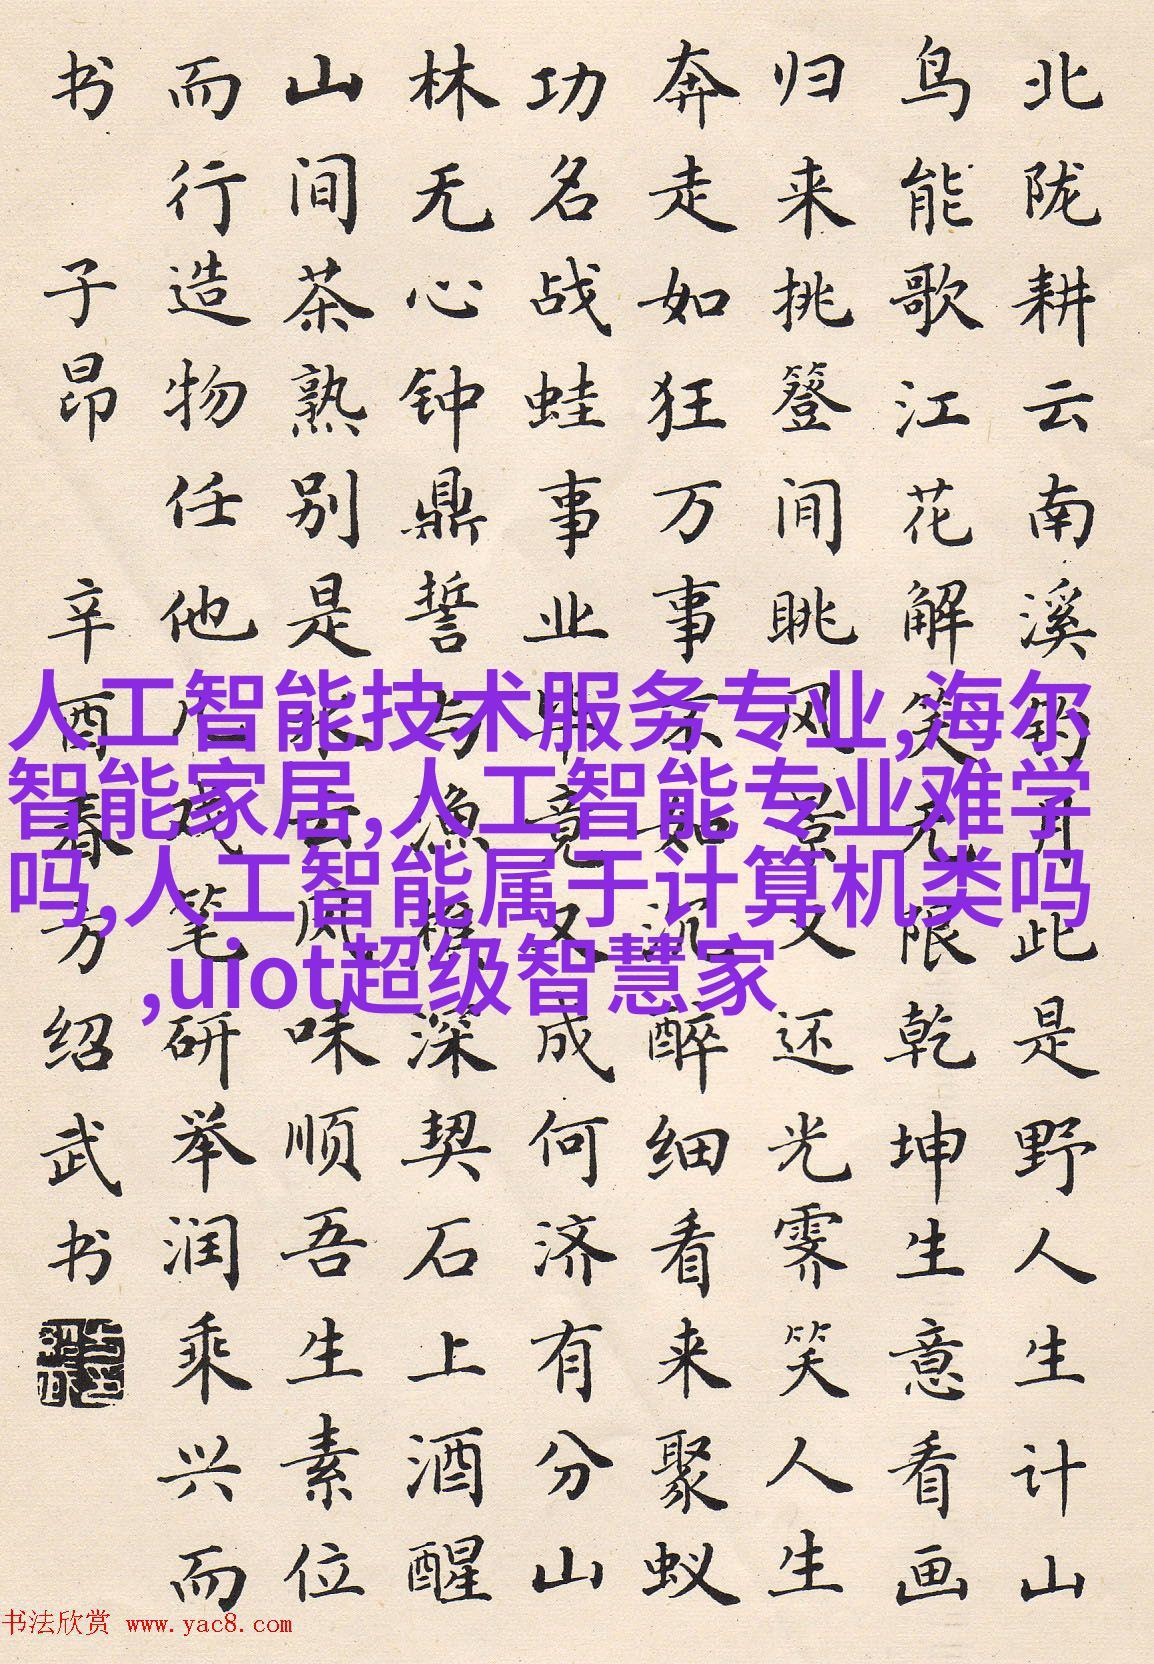 北陇耕云南溪钓月此是野人生计山
鸟能歌江花解笑无限乾坤生意看画
归来挑簦间眺风景又还光霁笑人生
奔走如狂万事不如沉醉细看来聚蚁
功名战蛙事业毕竟又成何济有分山
林无心钟鼎誓与渔樵深契石上酒醒
山间茶熟别是水云风味顺吾生素位
而行造物任他儿戏笔研举润乘兴而
书 子昂 辛酉春方绍武书
人工智能技术服务专业,海尔
智能家居,人工智能专业难学
吗,人工智能属于计算机类吗
,uiot超级智慧家
书法欣赏 www.yac8.com